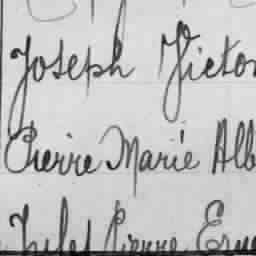 Joseph Victor
Pierre Marie Alb
Jules Pierre Erne